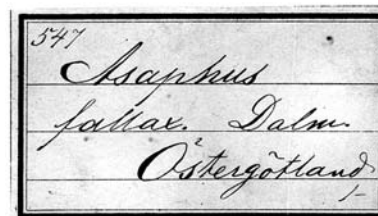 547
Asaphus
fallax. Dalm.
Östergötland